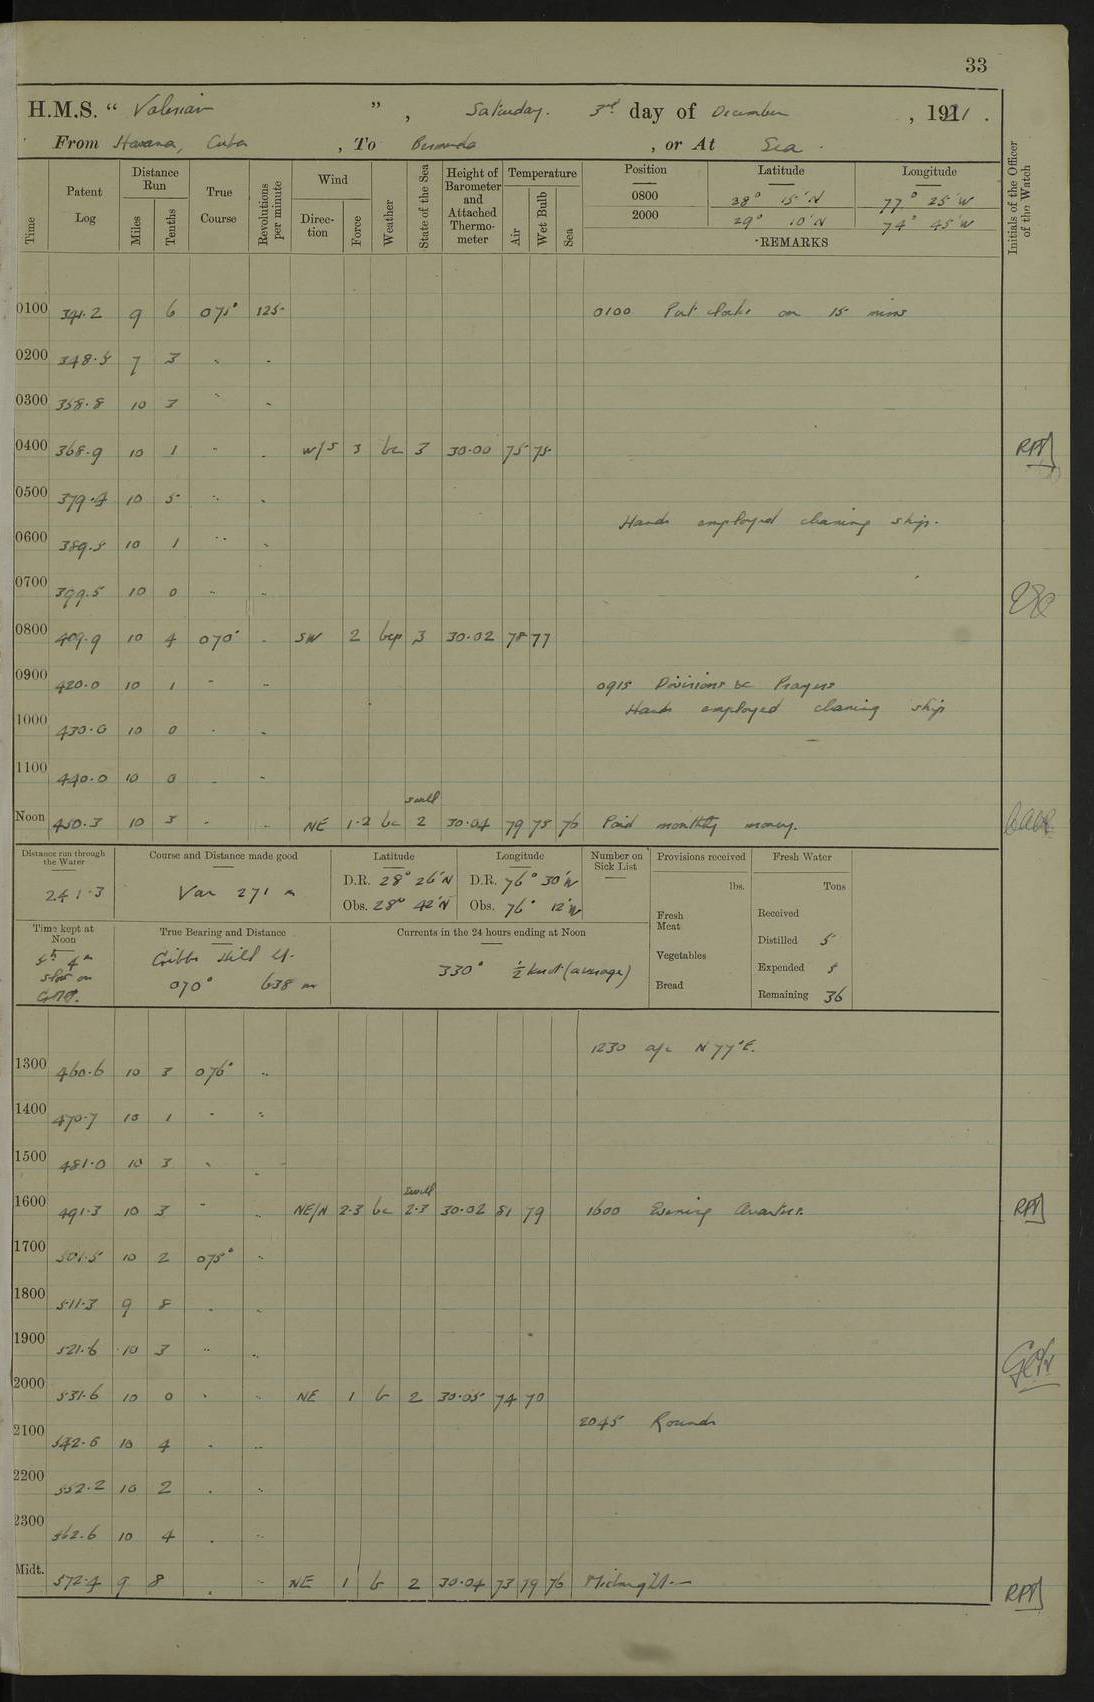 33
H.M.S. “ Valerian ”, Saturday. 3rd day of December, 1921.
From Havana, Cuba, To Bermuda, or At Sea.
Time
Patent Log
Distance Run
Miles
Tenths
True Course
Revolutions per minute
Wind
Direction
Force
Weather
State of the Sea
Height of Barometer and Attached Thermometer
Temperature
Air
Wet Bulb
Sea
Position Latitude Longitude
0800 28° 15'N 77° 25'W
2000 29° 10'N 74° 45'W
REMARKS
Initials of the Officer of the Watch
0100 341.2 9 6 075° 125 0100 Put clocks on 15 mins
0200 348.5 7 3 " "
0300 358.8 10 3 " "
0400 368.9 10 1 " " W/S 3 bc 3 30.00 75 75
0500 379.4 10 5 " "
Hands employed cleaning ship.
0600 389.5 10 1 " "
0700 399.5 10 0 " "
0800 409.9 10 4 070° " SW 2 bcp 3 30.02 78 77
0900 420.0 10 1 " " 0915 Divisions & Prayers
Hands employed cleaning ship
1000 430.0 10 0 " "
1100 440.0 10 0 " "
swell
Noon 450.3 10 3 " " NE 1.2 bc 2 30.04 79 75 76 Paid monthly money.
Distance run through the Water
241.3
Course and Distance made good
Var 271 m
Latitude
D.R. 28° 26'N
Obs. 28° 42'N
Longitude
D.R. 76° 30'W
Obs. 76° 12'W
Number on Sick List
Provisions received
lbs.
Fresh Meat
Vegetables
Bread
Fresh Water
Tons
Received
Distilled 5
Expended 5
Remaining 36
Time kept at Noon
5h 4m
slow on
GMT.
True Bearing and Distance
Gibbs Hill Lt.
070° 638 m
Currents in the 24 hours ending at Noon
330° ½ knot (average)
1230 a/c N 77° E.
1300 460.6 10 3 076° "
1400 470.7 10 1 " "
1500 481.0 10 3 " "
swell
1600 491.3 10 3 " " NE/N 2.3 bc 2.3 30.02 81 79 1600 Evening Quarters.
1700 501.5 10 2 075° "
1800 511.3 9 8 " "
1900 521.6 10 3 " "
2000 531.6 10 0 " " NE 1 b 2 30.05 74 70
2045 Rounds
2100 542.0 10 4 " "
2200 552.2 10 2 " "
2300 562.6 10 4 " "
Midt. 572.4 9 8 " " NE 1 b 2 30.04 73 79 76 Midnight.—